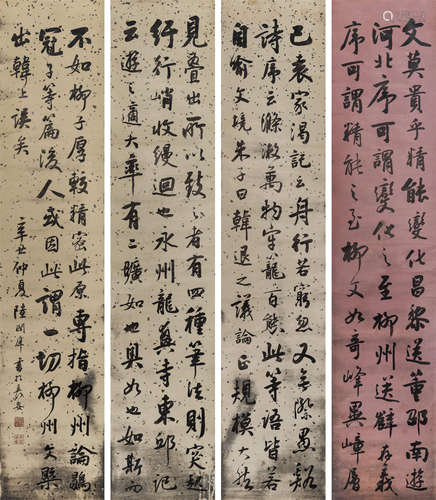 文莫貴乎精能變化昌黎送董邵南遊
河北序可謂變化之至柳州送薛存義
序可謂精能之至柳文如奇峰異嶂層
已袁家渴記云舟行若窮忽又無際愚谿
詩序云滌漱萬物牢籠百態此等語皆若
自喻文境朱子曰韓退之議論正規模大然
見疊出所以致之者有四種筆法則突起
紆行峭收縵迴也永州龍興寺東邱記
云遊之適大率有二曠如也奧如也如斯而
不如柳子厚較精密此原專指柳州論鶡
冠子等篇後人或因此謂一切柳州文槩
出韓上誤矣
辛丑仲夏陸潤庠書於